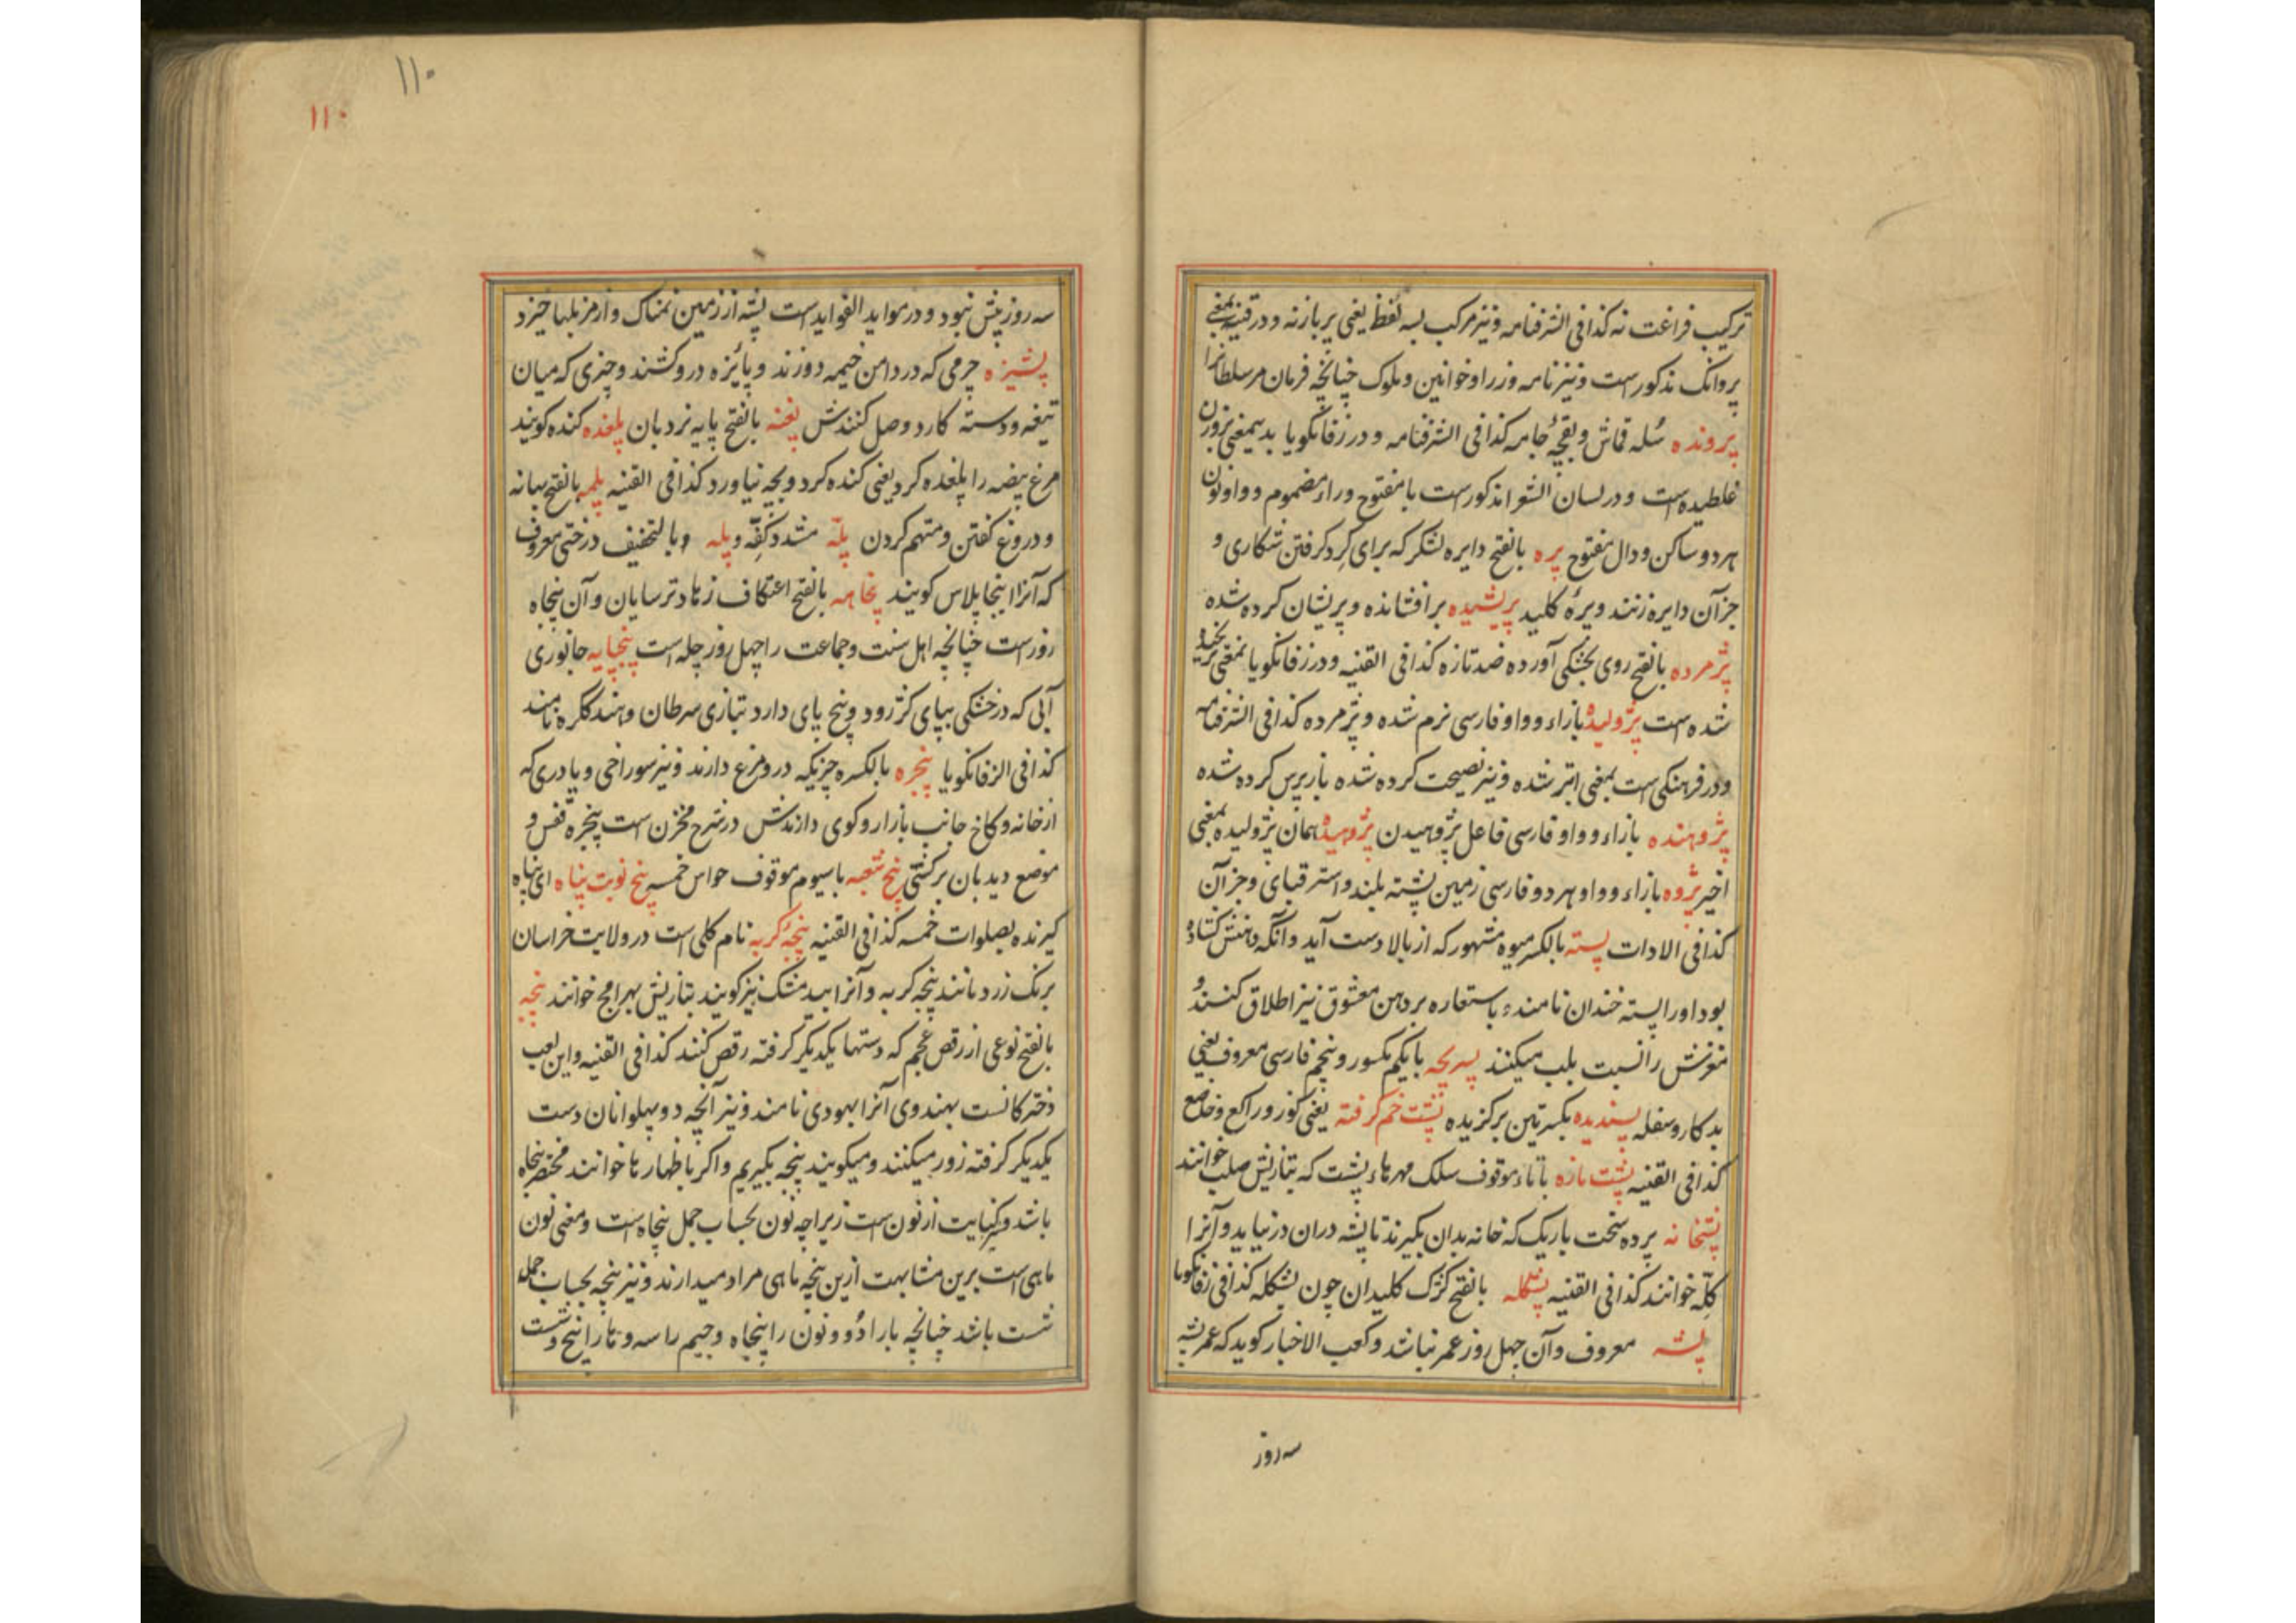 ترکیب فراغت نه کذا فی الشرفنامه و نیز مرکب بسه لفظ یعنی پر باز نه و در قنیه بمعنی
پروانک مذکور است و نیز نامه وزرا و خوانین و ملوک چنانچه فرمان مر سلطانرا
پرونده سله قماش و بقچهٔ جامه کذا فی الشرفنامه و در زفانگویا بدیمعنی بروزن
غلطیده است و در لسان الشعرا مذکور است با مفتوح و راء مضموم و واو و نون
هر دو ساکن و دال مفتوح پره بالفتح دایره لشکر که برای گرد گرفتن شکاری و
جز آن دایره زنند و پرهٔ کلید پریشیده بر افشانده و پریشان کرده شده
پژمرده بالفتح روی بخشکی آورده ضد تازه کذا فی القنیه و در زفانگویا بمعنی
شده است پژولیده بازاء و واو فارسی نرم شده و پژمرده کذا فی الشرفنامه
و در فرهنگی است بمعنی ابتر شده و نیز نصیحت کرده شده باز پرس کرده شده
پژوهنده بازاء و واو فارسی فاعل پژوهیدن پژوهیده همان پژولیده بمعنی
اخیر پژوه بازاء و واو هر دو فارسی زمین پشته بلند و استر قبای و جز آن
کذا فی الادات پسته بالکسر میوه مشهور که از بالا دست آید و آنگه دهنش گشاده
بود او را پسته خندان نامند و باستعاره بر دهن معشوق نیز اطلاق کنند و
مغزش را نسبت بلب میکنند پسریچه بایکم مکسور و پنجم فارسی معروف یعنی
بد کار و سفله پسندیده بکسرتین برگزیده پشت خم گرفته یعنی کوز و راکع و خاضع
کذا فی القنیه پشت مازه باتاء موقوف سلک مهرهاء پشت که بتازیش صلب خوانند
پشخانه پرده سخت باریک که خانه بدان گیرند تا پشه دران در نیاید و آنرا
کله خوانند کذا فی القنیه پشکله بالفتح کژک کلیدان چون بشکله کذا فی زفانگویا
پشه معروف و آن چهل روز عمر نباشد و کعب الاخبار گوید که عمر پشه
سه روز
۱۱۰
۱۱۰
سه روز پیش نبود و در مواید الفواید است پشه از زمین نمناک و از مزبلها خیزد
پشیزه چرمی که در دامن خیمه دوزند و پائزه درو کشند و چیزی که میان
تیغه و دسته کارد وصل کنندش پغنه بالفتح پایه نردبان پلغده کنده گویند
مرغ بیضه را پلغده کرد یعنی کنده کرد و بچه نیاورد کذا فی القنیه پلمه بالفتح بهانه
و دروغ گفتن و متهم کردن پله مشدد کفه و پله و بالتخفیف درختی معروف
که آنرا اینجا پلاس گویند پنجامه بالفتح اعتکاف زهاد ترسایان و آن پنجاه
روز است چنانچه اهل سنت و جماعت را چهل روز چله است پنجپایه جانوری
آبی که در خشکی بپای کژ رود و پنج پای دارد بتازی سرطان و بهند ککره نامند
کذا فی الزفانگویا پنجره بالکسره چیزیکه درو مرغ دارند و نیز سوراخی و یا دری که
از خانه و کاخ جانب بازار و کوی دارندش در شرح مخزن است پنجره قفس و
موضع دیدبان بر کشتی پنج شعبه باسیوم موقوف حواس خمسه پنج نوبت پناه ای پناه
گیرنده بصلوات خمسه کذا فی القنیه پنجهٔ گربه نام گلی است در ولایت خراسان
برنک زرد مانند پنجه گربه و آنرا بید مشک نیز گویند بتازیش بهرامج خوانند پنجه
بالفتح نوعی از رقص عجم که دستها یکدیگر گرفته رقص کنند کذا فی القنیه و این لعب
دخترکانست بهندوی آنرا بهودی نامند و نیز آنچه دو پهلوانان دست
یکدیگر گرفته زور میکنند و میگویند پنجه بگیریم و اگر باظهار ها خوانند مختصر پنجاه
باشد و نیز کنایت از نون است زیراچه نون بحساب جمل پنجاه است و معنی نون
ماهی است برین مشابهت ازین پنجه ماهی مراد میدارند و نیز پنجه بحساب جمل
شست باشد چنانچه با را دو و نون را پنجاه و جیم را سه و ها را پنج و شست